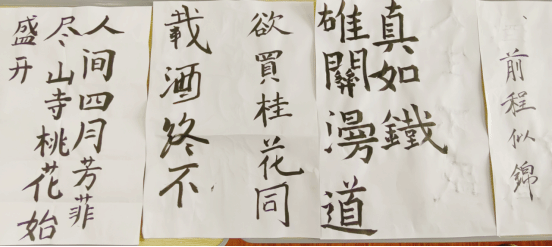 人间四月芳菲
尽山寺桃花始
盛开
欲買桂花同
載酒終不
雄關漫道
真如鐵
前程似錦